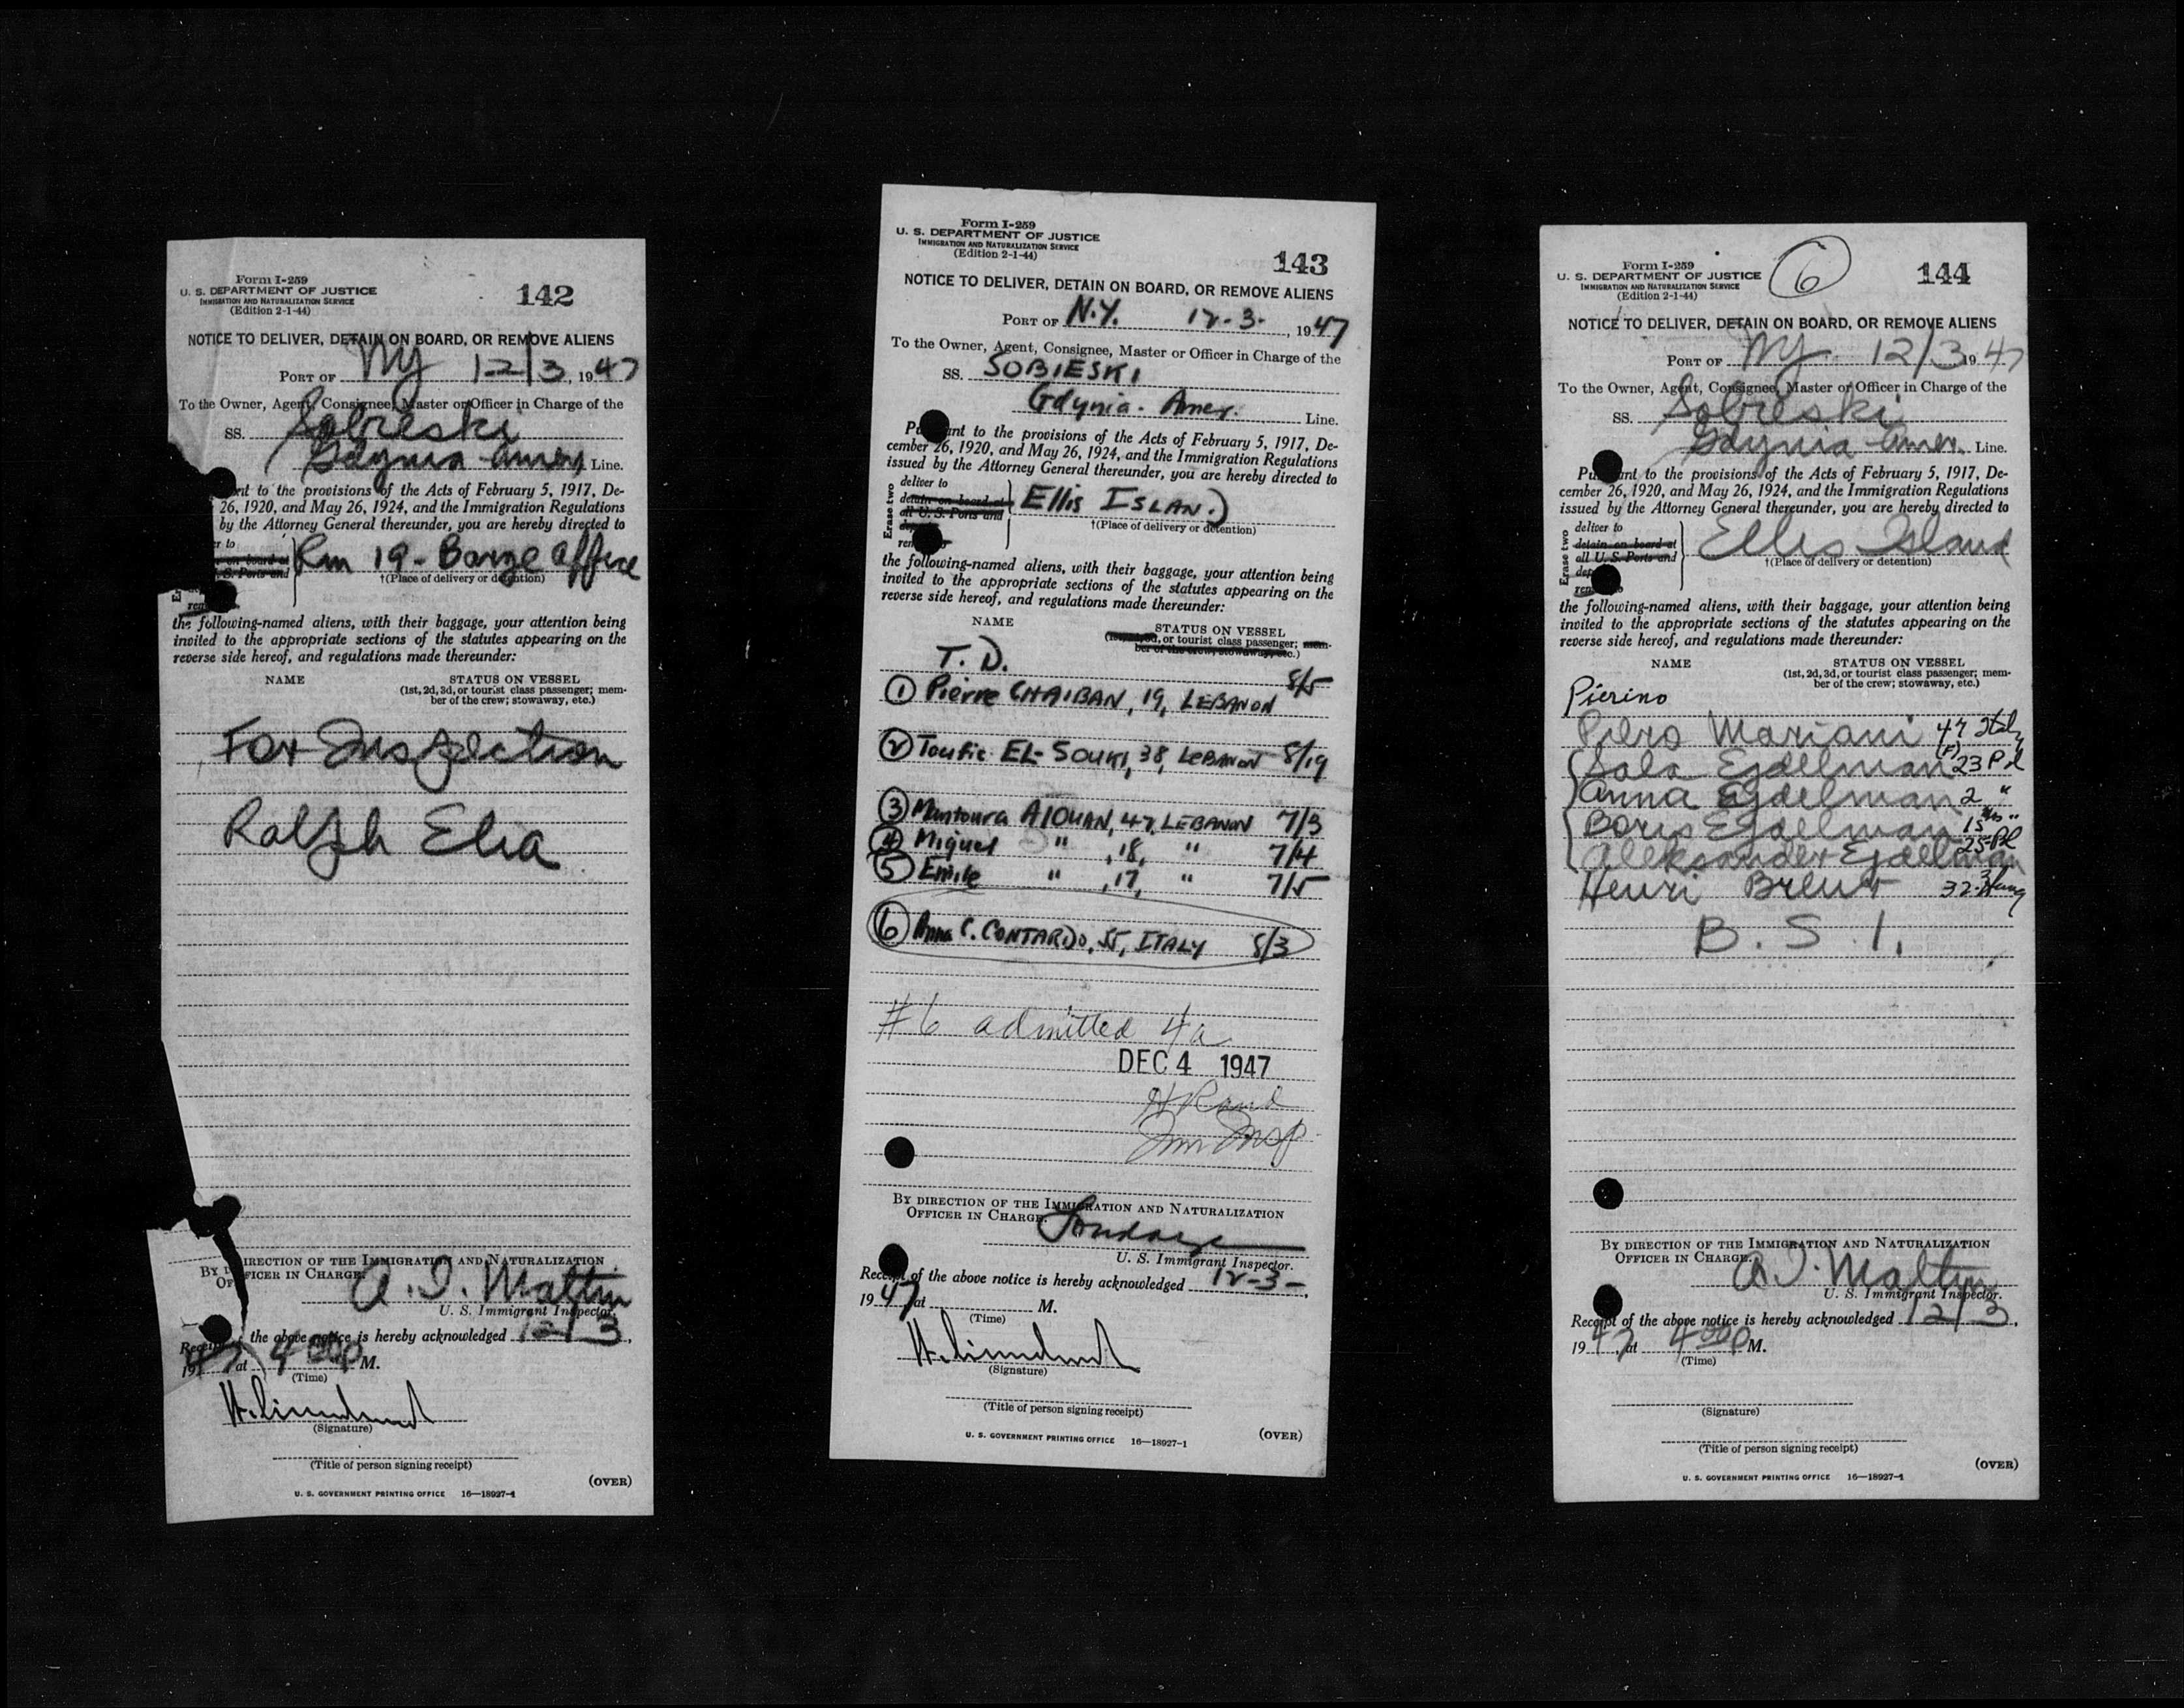 Form I-259
U. S. DEPARTMENT OF JUSTICE
IMMIGRATION AND NATURALIZATION SERVICE
(Edition 2-1-44)
142
NOTICE TO DELIVER, DETAIN ON BOARD, OR REMOVE ALIENS
PORT OF NY 12/3, 1947
To the Owner, Agent, Consignee, Master or Officer in Charge of the
SS. Sobieski
Gdynia Amer. Line.
nt to the provisions of the Acts of February 5, 1917, De-
26, 1920, and May 26, 1924, and the Immigration Regulations
by the Attorney General thereunder, you are hereby directed to
r to
on board at
S. Ports and
Rm 19 - Barge Office
†(Place of delivery or detention)
the following-named aliens, with their baggage, your attention being
invited to the appropriate sections of the statutes appearing on the
reverse side hereof, and regulations made thereunder:
NAME STATUS ON VESSEL
(1st, 2d, 3d, or tourist class passenger; mem-
ber of the crew; stowaway, etc.)
For Inspection
Ralph Elia
BY DIRECTION OF THE IMMIGRATION AND NATURALIZATION
OFFICER IN CHARGE.
A. I. Maltin
U. S. Immigrant Inspector.
Receipt of the above notice is hereby acknowledged 12/3,
1947 at 4 00 P M.
(Time)
(Signature)
(Title of person signing receipt)
(OVER)
U. S. GOVERNMENT PRINTING OFFICE 16—18927-1
Form I-259
U. S. DEPARTMENT OF JUSTICE
IMMIGRATION AND NATURALIZATION SERVICE
(Edition 2-1-44)
143
NOTICE TO DELIVER, DETAIN ON BOARD, OR REMOVE ALIENS
PORT OF N.Y. 12-3-, 1947
To the Owner, Agent, Consignee, Master or Officer in Charge of the
SS. SOBIESKI
Gdynia. Amer. Line.
Pu ant to the provisions of the Acts of February 5, 1917, De-
cember 26, 1920, and May 26, 1924, and the Immigration Regulations
issued by the Attorney General thereunder, you are hereby directed to
Erase two
deliver to
detain on board at
all U. S. Ports and
dep
rem
Ellis ISLAND
†(Place of delivery or detention)
the following-named aliens, with their baggage, your attention being
invited to the appropriate sections of the statutes appearing on the
reverse side hereof, and regulations made thereunder:
NAME STATUS ON VESSEL
(1st, 2d, 3d, or tourist class passenger; mem-
ber of the crew; stowaway, etc.)
T. D.
1 Pierre CHAIBAN, 19, LEBANON 8/5
2 Toufic EL-SOUKI, 38, LEBANON 8/19
3 Mantoura AIOUAN, 47, LEBANON 7/3
4 Miguel " , 18, " 7/4
5 Emile " , 17, " 7/5
6 Anna C. CONTARDO, 55, ITALY 8/3
#6 admitted 4a
DEC 4 1947
H Rand
Imm Insp
BY DIRECTION OF THE IMMIGRATION AND NATURALIZATION
OFFICER IN CHARGE.
U. S. Immigrant Inspector.
Receipt of the above notice is hereby acknowledged 12-3-,
1947 at M.
(Time)
(Signature)
(Title of person signing receipt)
(OVER)
U. S. GOVERNMENT PRINTING OFFICE 16—18927-1
Form I-259
U. S. DEPARTMENT OF JUSTICE
IMMIGRATION AND NATURALIZATION SERVICE
(Edition 2-1-44)
6
144
NOTICE TO DELIVER, DETAIN ON BOARD, OR REMOVE ALIENS
PORT OF NY. 12/3 1947
To the Owner, Agent, Consignee, Master or Officer in Charge of the
SS. Sobieski
Gdynia Amer. Line.
Pu ant to the provisions of the Acts of February 5, 1917, De-
cember 26, 1920, and May 26, 1924, and the Immigration Regulations
issued by the Attorney General thereunder, you are hereby directed to
Erase two
deliver to
detain on board at
all U. S. Ports and
dep
rem
Ellis Island
†(Place of delivery or detention)
the following-named aliens, with their baggage, your attention being
invited to the appropriate sections of the statutes appearing on the
reverse side hereof, and regulations made thereunder:
NAME STATUS ON VESSEL
(1st, 2d, 3d, or tourist class passenger; mem-
ber of the crew; stowaway, etc.)
Pierino
Piero Mariani 47 Italy
Sala Ejdelman (F) 23 Pol
Anna Ejdelman 2 "
Boris Ejdelman 15 mos "
Aleksander Ejdelman 25 Pol
Henri 32 Hung
B. S. I.
BY DIRECTION OF THE IMMIGRATION AND NATURALIZATION
OFFICER IN CHARGE.
A. I. Maltin
U. S. Immigrant Inspector.
Receipt of the above notice is hereby acknowledged 12/3,
1947, at 4 00 P M.
(Time)
(Signature)
(Title of person signing receipt)
(OVER)
U. S. GOVERNMENT PRINTING OFFICE 16—18927-1